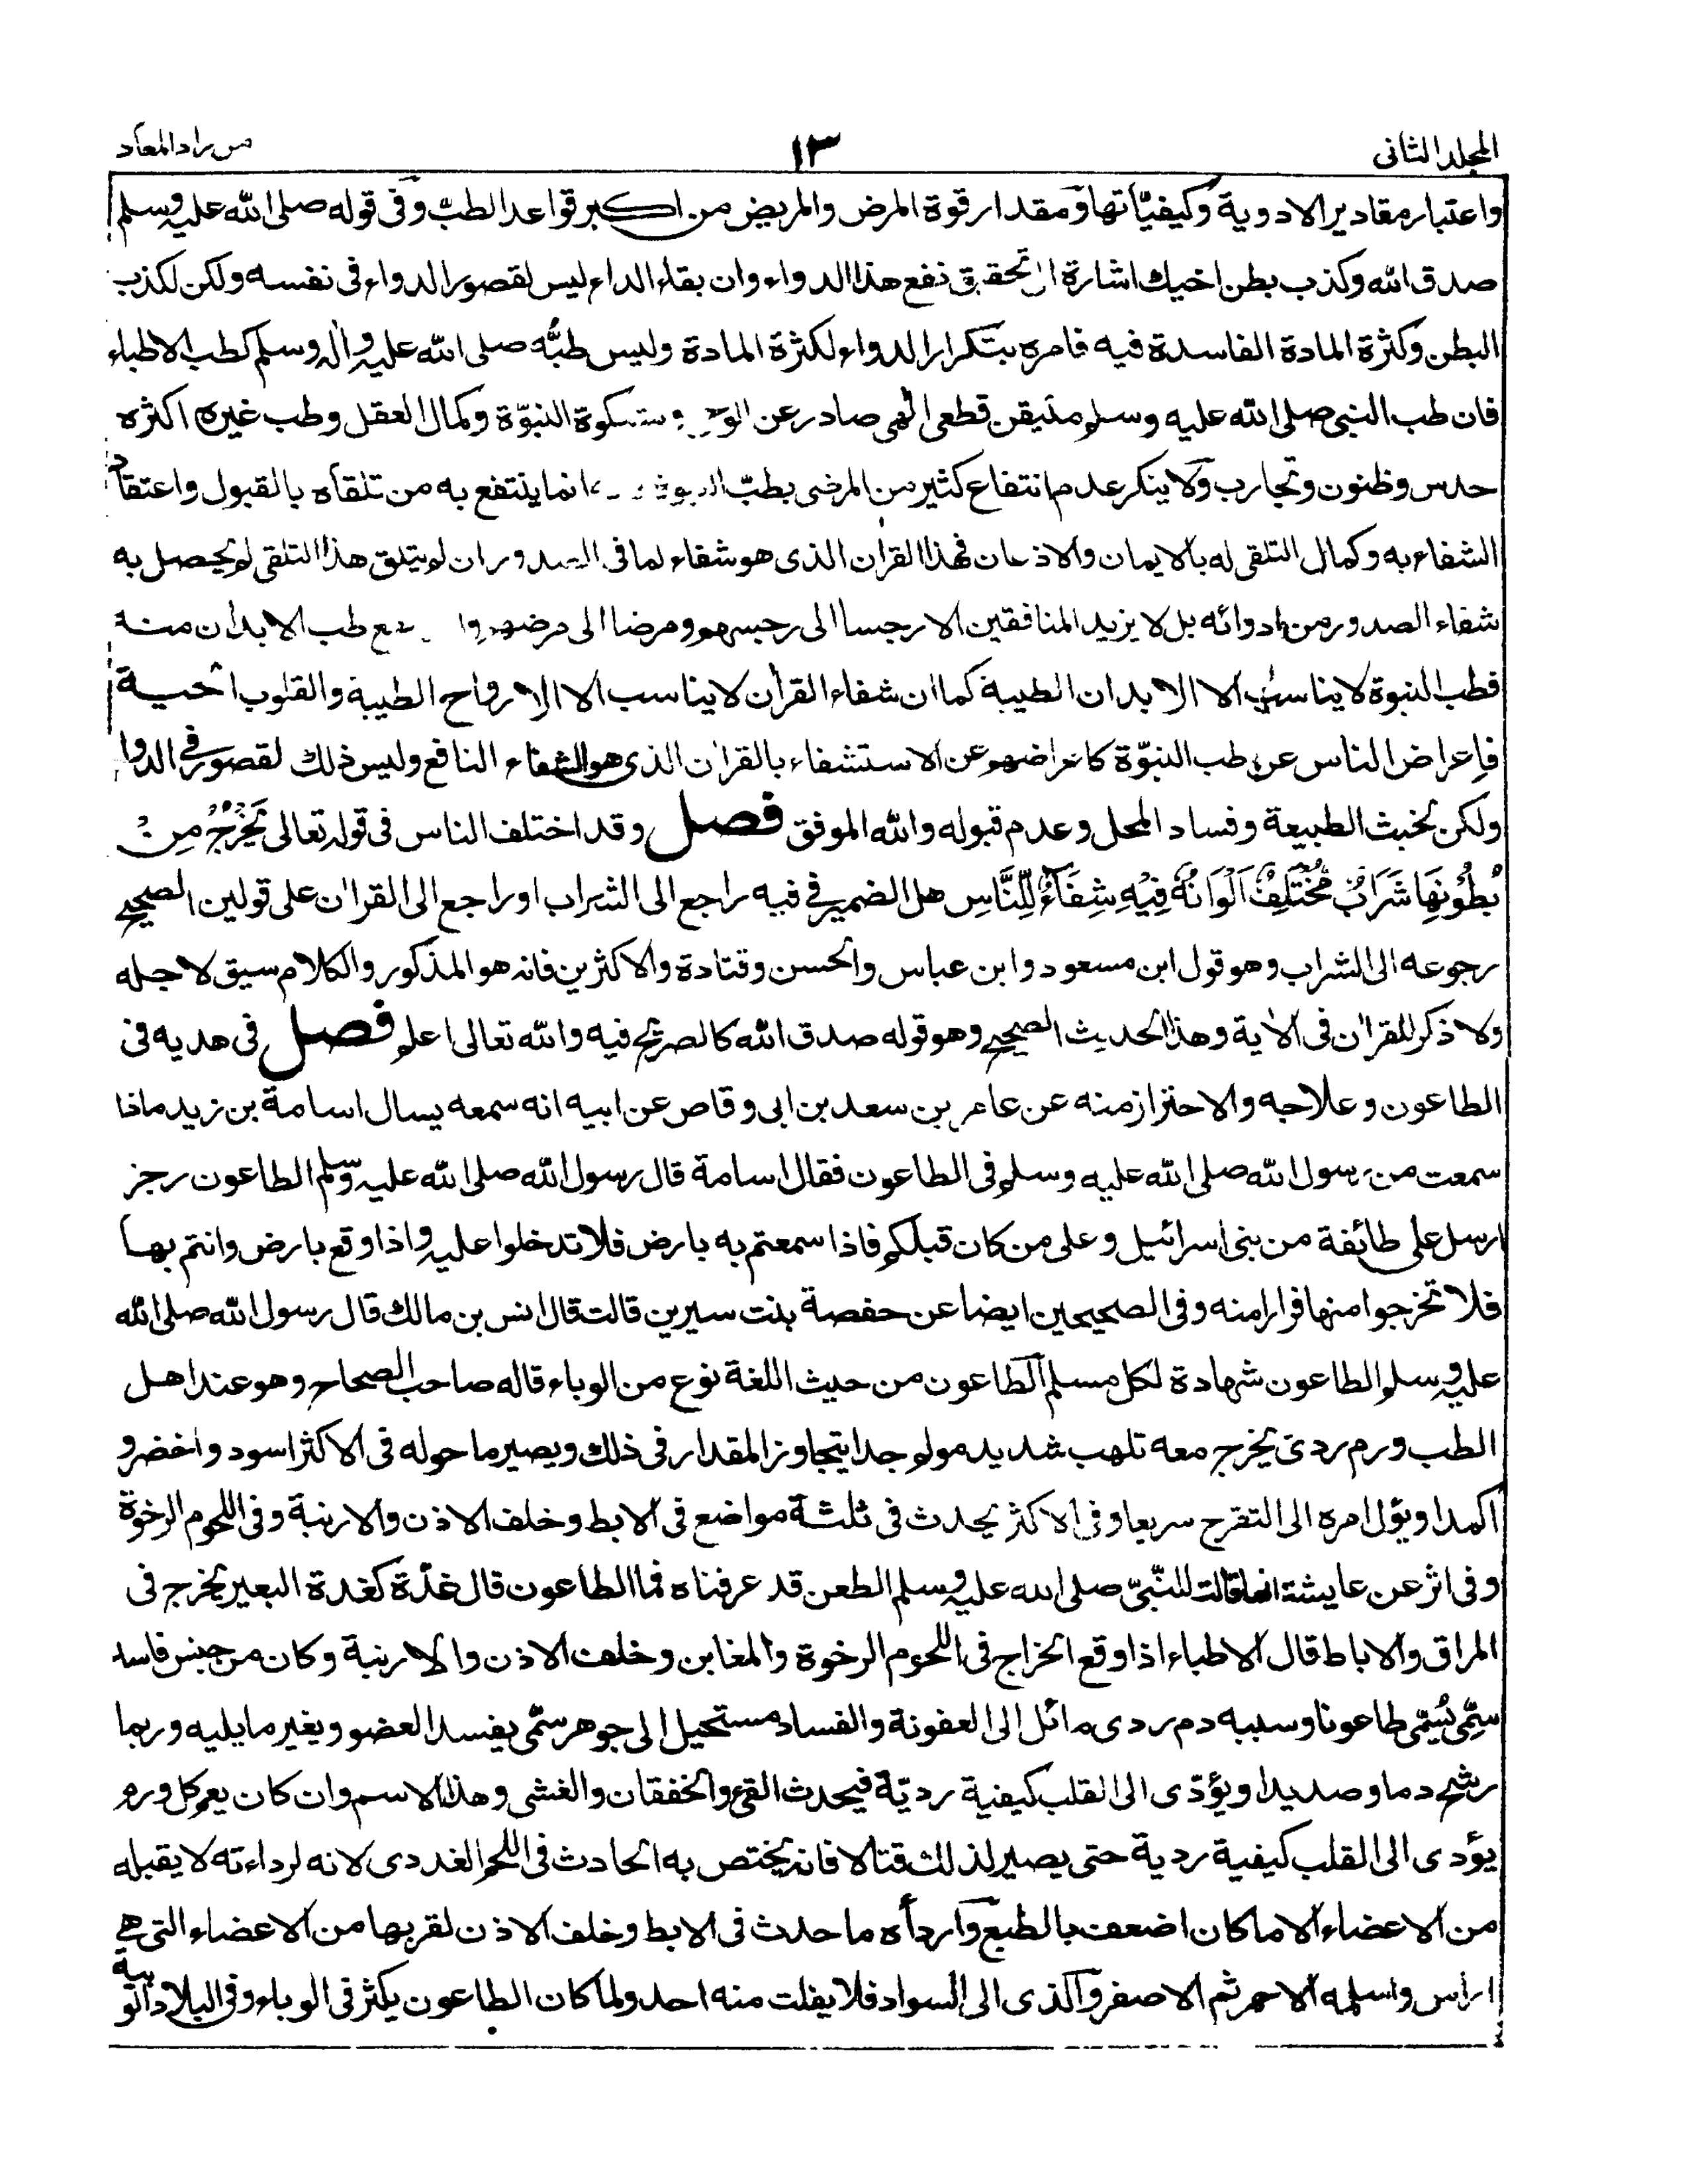 المجلد الثانى
١٣
من زاد المعاد
واعتبار مقادير الادوية وكيفيّاتها ومقدار قوة المرض والمريض من اكبر قواعد الطبّ وفى قوله صلى الله عليه وسلم
صدق الله وكذب بطن اخيك اشارة الى تحقيق نفع هذا الدواء وان بقاء الداء ليس لقصور الدواء فى نفسه ولكن لكذب
البطن وكثرة المادة الفاسدة فيه فامره بتكرار الدواء لكثرة المادة وليس طبُّه صلى الله عليه واله وسلم كطب الاطباء
فان طب النبى صلى الله عليه وسلم متيقن قطعى الهى صادر عن الوحى ومشكوة النبوّة وكمال العقل وطب غيره اكثره
حدس وظنون وتجارب ولا ينكر عدم انتفاع كثير من المرضى بطبّ النبوة انما ينتفع به من تلقاه بالقبول واعتقاد
الشفاء به وكمال التلقى له بالايمان والاذعان فهذا القران الذى هو شفاء لما فى الصدور ان لم يتلق هذا التلقى لم يحصل به
شفاء الصدور من ادوائه بل لا يزيد المنافقين الا رجسا الى رجسهم ومرضا الى مرضهم طب الابدان منه
فطب النبوة لا يناسب الا الابدان الطيبة كما ان شفاء القران لا يناسب الا الارواح الطيبة والقلوب الحية
فاعراض الناس عن طب النبوّة كاعراضهم عن الاستشفاء بالقران الذى هو الشفاء النافع وليس ذلك لقصور فى الدوا
ولكن لخبث الطبيعة وفساد المحل وعدم قبوله والله الموفق فصل وقد اختلف الناس فى قوله تعالى يَخْرُجُ مِنْ
بُطُوْنِهَا شَرَابٌ مُّخْتَلِفٌ اَلْوَانُهٗ فِيْهِ شِفَآءٌ لِّلنَّاسِ هل الضمير فى فيه راجع الى الشراب او راجع الى القران على قولين الصحيح
رجوعه الى الشراب وهو قول ابن مسعود وابن عباس والحسن وقتادة والاكثرين فانه هو المذكور والكلام سيق لاجله
ولا ذكر للقران فى الاية وهذا الحديث الصحيح وهو قوله صدق الله كالصريح فيه والله تعالى اعلم فصل فى هديه فى
الطاعون وعلاجه والاحتراز منه عن عامر بن سعد بن ابى وقاص عن ابيه انه سمعه يسال اسامة بن زيد ماذا
سمعت من رسول الله صلى الله عليه وسلم فى الطاعون فقال اسامة قال رسول الله صلى الله عليه وسلم الطاعون رجز
ارسل على طائفة من بنى اسرائيل وعلى من كان قبلكم فاذا سمعتم به بارض فلا تدخلوا عليه واذا وقع بارض وانتم بها
فلا تخرجوا منها فرارا منه وفى الصحيحين ايضا عن حفصة بنت سيرين قالت قال انس بن مالك قال رسول الله صلى الله
عليه وسلم الطاعون شهادة لكل مسلم الطاعون من حيث اللغة نوع من الوباء قاله صاحب الصحاح وهو عند اهل
الطب ورم ردى يخرج معه تلهب شديد مولم جدا يتجاوز المقدار فى ذلك ويصير ما حوله فى الاكثر اسود واخضر و
اكمدا ويؤل امره الى التقرح سريعا وفى الاكثر يحدث فى ثلثة مواضع فى الابط وخلف الاذن والارنبة وفى اللحوم الرخوة
وفى اثر عن عايشة انها قالت للنّبىّ صلى الله عليه وسلم الطعن قد عرفناه فما الطاعون قال غدّة كغدة البعير يخرج فى
المراق والاباط قال الاطباء اذا وقع الخراج فى اللحوم الرخوة والمغابن وخلف الاذن والارنبة وكان من جنس فاسد
سمّى يُسمّى طاعونا وسببه دم ردى مائل الى العفونة والفساد مستحيل الى جوهر سمّى يفسد العضو ويغير ما يليه وربما
رشح دما وصديدا ويؤدّى الى القلب كيفية رديّة فيحدث القئ والخفقان والغشى وهذا الاسم وان كان يعم كل ورم
يؤدى الى القلب كيفية ردية حتى يصير لذلك قتالا فانه يختص به الحادث فى اللحم الغددى لانه لرداءته لا يقبله
من الاعضاء الا ما كان اضعف بالطبع وارداه ما حدث فى الابط وخلف الاذن لقربها من الاعضاء التى هى
اراس واسلمه الاحمر ثم الاصفر والذى الى السواد فلا يفلت منه احد ولما كان الطاعون يكثر فى الوباء وفى البلاد الوبية